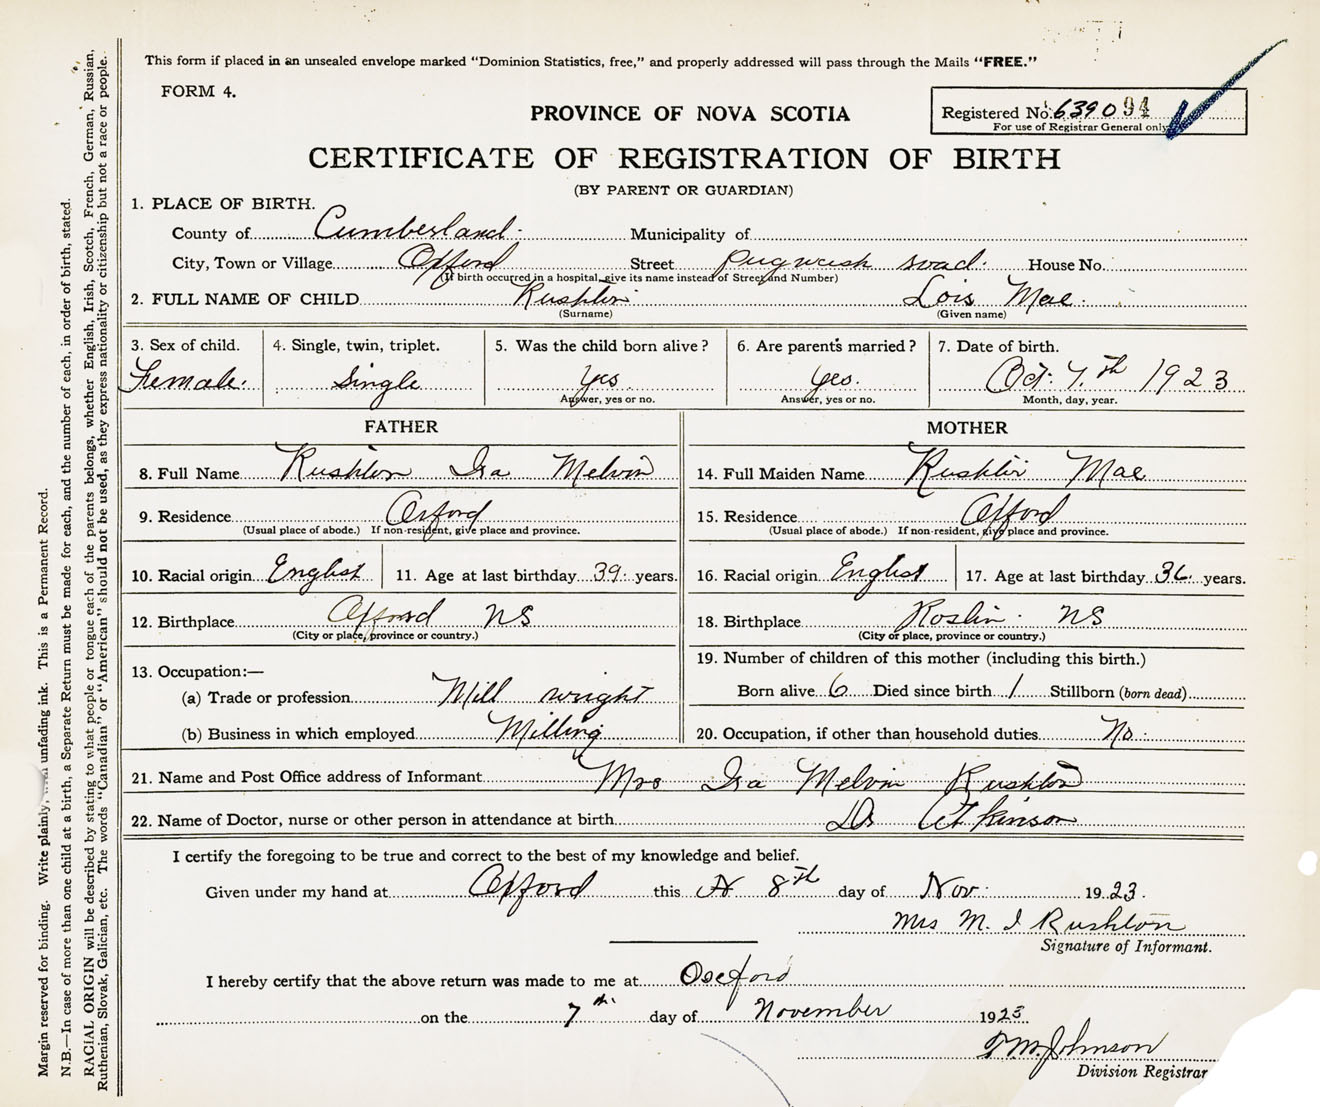 This form if placed in an unsealed envelope marked "Dominion Statistics, free," and properly addressed will pass through the Mails "FREE."
FORM 4.
PROVINCE OF NOVA SCOTIA
Registered No. 639094
For use of Registrar General only
CERTIFICATE OF REGISTRATION OF BIRTH
(BY PARENT OR GUARDIAN)
1. PLACE OF BIRTH.
County of Cumberland Municipality of
City, Town or Village Oxford Street Pugwash road House No.
(If birth occurred in a hospital, give its name instead of Street and Number)
2. FULL NAME OF CHILD Rushton Lois Mae
(Surname) (Given name)
3. Sex of child. 4. Single, twin, triplet. 5. Was the child born alive? 6. Are parents married? 7. Date of birth.
Female. Single yes yes. Oct. 7th 1923
Answer, yes or no. Answer, yes or no. Month, day, year.
FATHER MOTHER
8. Full Name Rushton Ira Melvin 14. Full Maiden Name Rushton Mae
9. Residence Oxford 15. Residence Oxford
(Usual place of abode.) If non-resident, give place and province. (Usual place of abode.) If non-resident, give place and province.
10. Racial origin English 11. Age at last birthday 39 years. 16. Racial origin English 17. Age at last birthday 36 years.
12. Birthplace Oxford NS 18. Birthplace Roslin NS
(City or place, province or country.) (City or place, province or country.)
13. Occupation:— 19. Number of children of this mother (including this birth.)
(a) Trade or profession Mill wright Born alive 6 Died since birth 1 Stillborn (born dead)
(b) Business in which employed Milling 20. Occupation, if other than household duties No.
21. Name and Post Office address of Informant Mrs Ira Melvin Rushton
22. Name of Doctor, nurse or other person in attendance at birth Dr Atkinson
I certify the foregoing to be true and correct to the best of my knowledge and belief.
Given under my hand at Oxford this 8th day of Nov. 1923.
Mrs M. I Rushton
Signature of Informant.
I hereby certify that the above return was made to me at Oxford
on the 7th day of November 1923
Johnson
Division Registrar
Margin reserved for binding. Write plainly, unfading ink. This is a Permanent Record.
N.B.—In case of more than one child at a birth, a Separate Return must be made for each, and the number of each, in order of birth, stated.
RACIAL ORIGIN will be described by stating to what people or tongue each of the parents belongs, whether English, Irish, Scotch, French, German, Russian,
Ruthenian, Slovak, Galician, etc. The words "Canadian" or "American" should not be used, as they express nationality or citizenship but not a race or people.